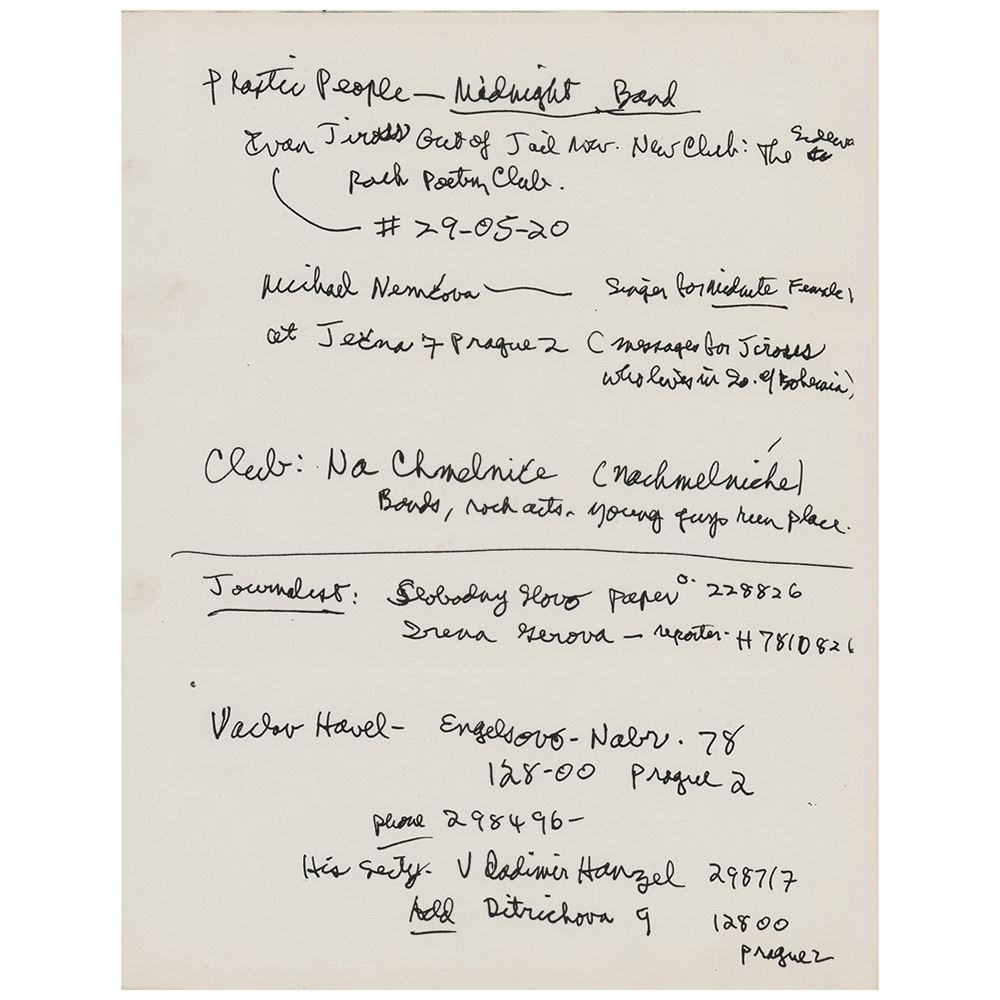 Plastic People — Midnight Band
Evan Jirous Out of Jail now. New Club: The
Rock Poetry Club.
# 29-05-20
Michael Nemcova — Singer for Midnite Female)
at Ječna 7 Prague 2 (messages for Jirous
who lives in So. of Bohemia)
Club: Na Chmelnice (nachmelniché)
Bands, rock acts - young guys run place.
Journalist: Slobodny Slovo paper O. 228826
Irena Gerova — reporter - H 7810826
Vaclav Havel - Engelsovo - Nabr. 78
128-00 Prague 2
phone 298496-
His Secty. Vladimir Hanzel 298717
Add Ditrichova 9 12800
Prague 2